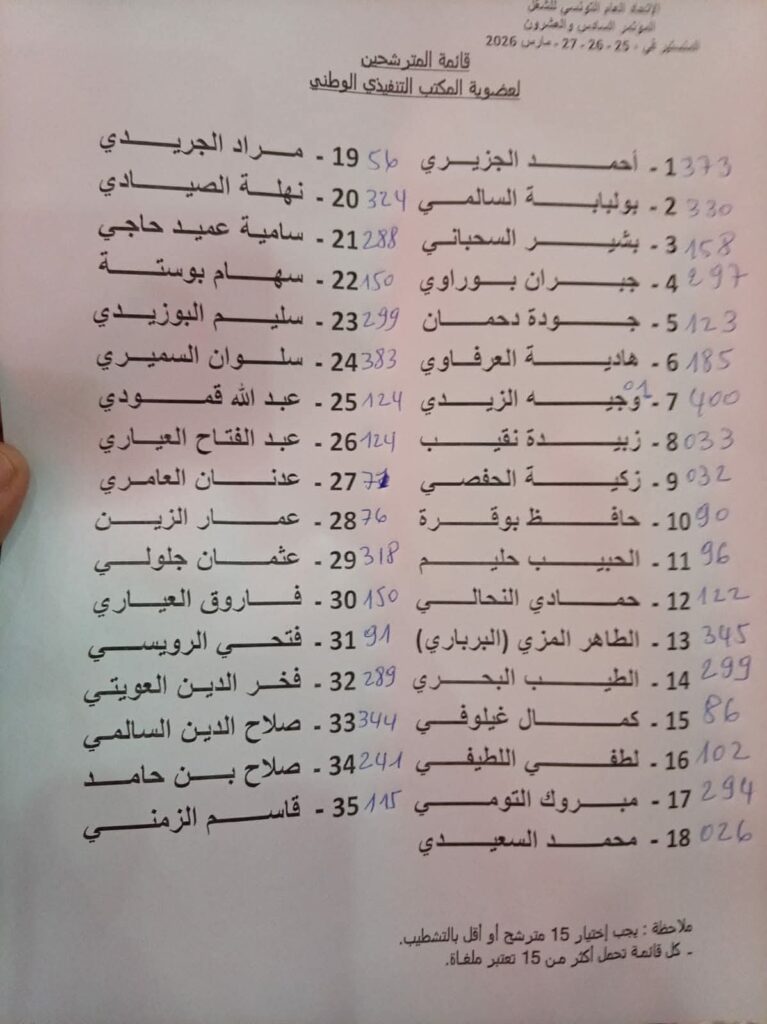 الإتحاد العام التونسي للشغل
المؤتمر السادس والعشرون
المنستير في : 25 - 26 - 27 - مارس 2026
قائمة المترشحين
لعضوية المكتب التنفيذي الوطني
1 - أحمد الجزيري 373
2 - بولبابة السالمي 330
3 - بشير السحباني 158
4 - جبران بوراوي 297
5 - جودة دحمان 123
6 - هادية العرفاوي 185
7 - وجيه الزيدي 400 01
8 - زبيدة نقيب 033
9 - زكية الحفصي 032
10 - حافظ بوقرة 90
11 - الحبيب حليم 96
12 - حمادي النحالي 122
13 - الطاهر المزي (البرباري) 345
14 - الطيب البحري 299
15 - كمال غيلوفي 86
16 - لطفي اللطيفي 102
17 - مبروك التومي 294
18 - محمد السعيدي 026
19 - مراد الجريدي 56
20 - نهلة الصيادي 324
21 - سامية عميد حاجي 288
22 - سهام بوستة 150
23 - سليم البوزيدي 299
24 - سلوان السميري 383
25 - عبد الله قمودي 124
26 - عبد الفتاح العياري 124
27 - عدنان العامري
28 - عمار الزين 76
29 - عثمان جلولي 318
30 - فاروق العياري 150
31 - فتحي الرويسي 91
32 - فخر الدين العويتي 289
33 - صلاح الدين السالمي 344
34 - صلاح بن حامد 241
35 - قاسم الزمني 115
ملاحظة : يجب إختيار 15 مترشح أو أقل بالتشطيب.
- كل قائمة تحمل أكثر من 15 تعتبر ملغاة.